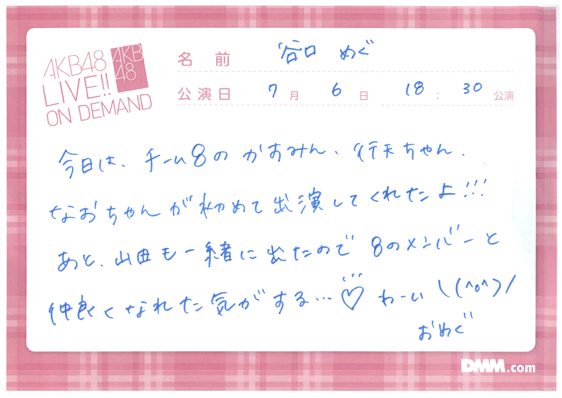 AKB48
LIVE!!
ON DEMAND
AKB
48
名前 谷口 めぐ
公演日 7月 6日 18:30 公演
今日は、チーム8の かすみん、行天ちゃん、
なおちゃんが 初めて出演してくれたよ!!!
あと、山田も一緒に出たので 8のメンバーと
仲良くなれた気がする…♡ わーい \(^o^)/
おめぐ
DMM.com